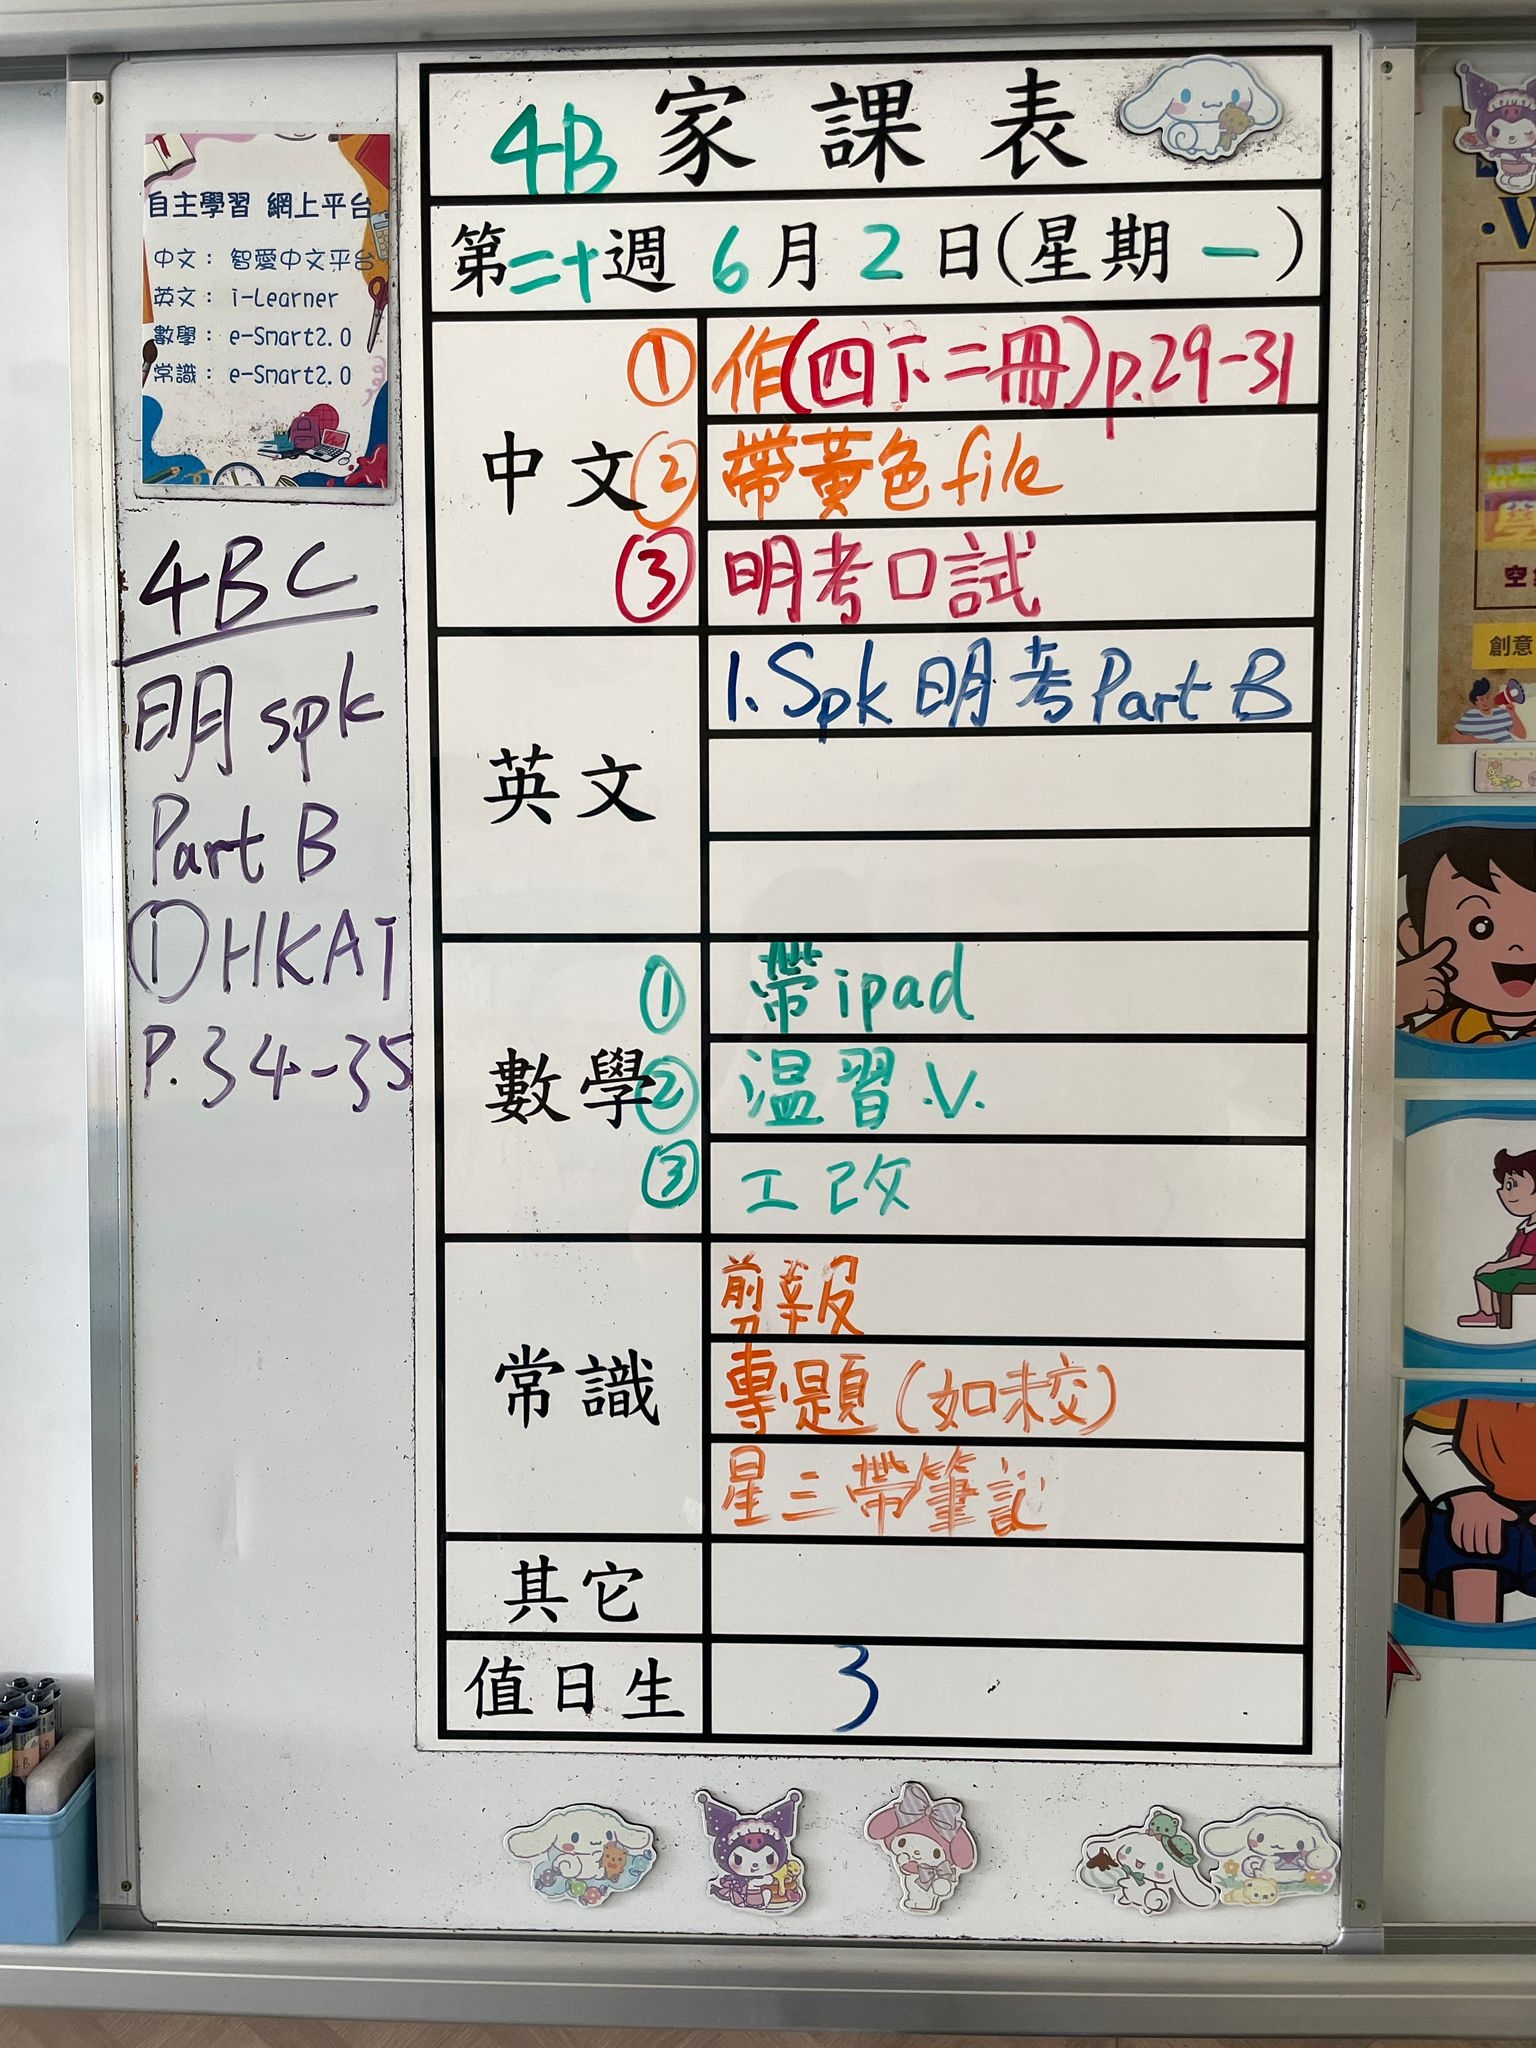 自主學習 網上平台
中文： 智愛中文平台
英文： i-Learner
數學： e-Smart2.0
常識： e-Smart2.0
4BC
明 spk
Part B
① HKAT
P. 34-35
4B 家課表
第二十週 6月2日(星期一)
中文
① 作(四下二冊)p.29-31
② 帶黃色file
③ 明考口試
英文
1. Spk 明考 Part B
數學
① 帶ipad
② 温習 V.
③ 工改
常識
剪報
專題(如未交)
星三帶筆記
其它
值日生 3
創意
4B